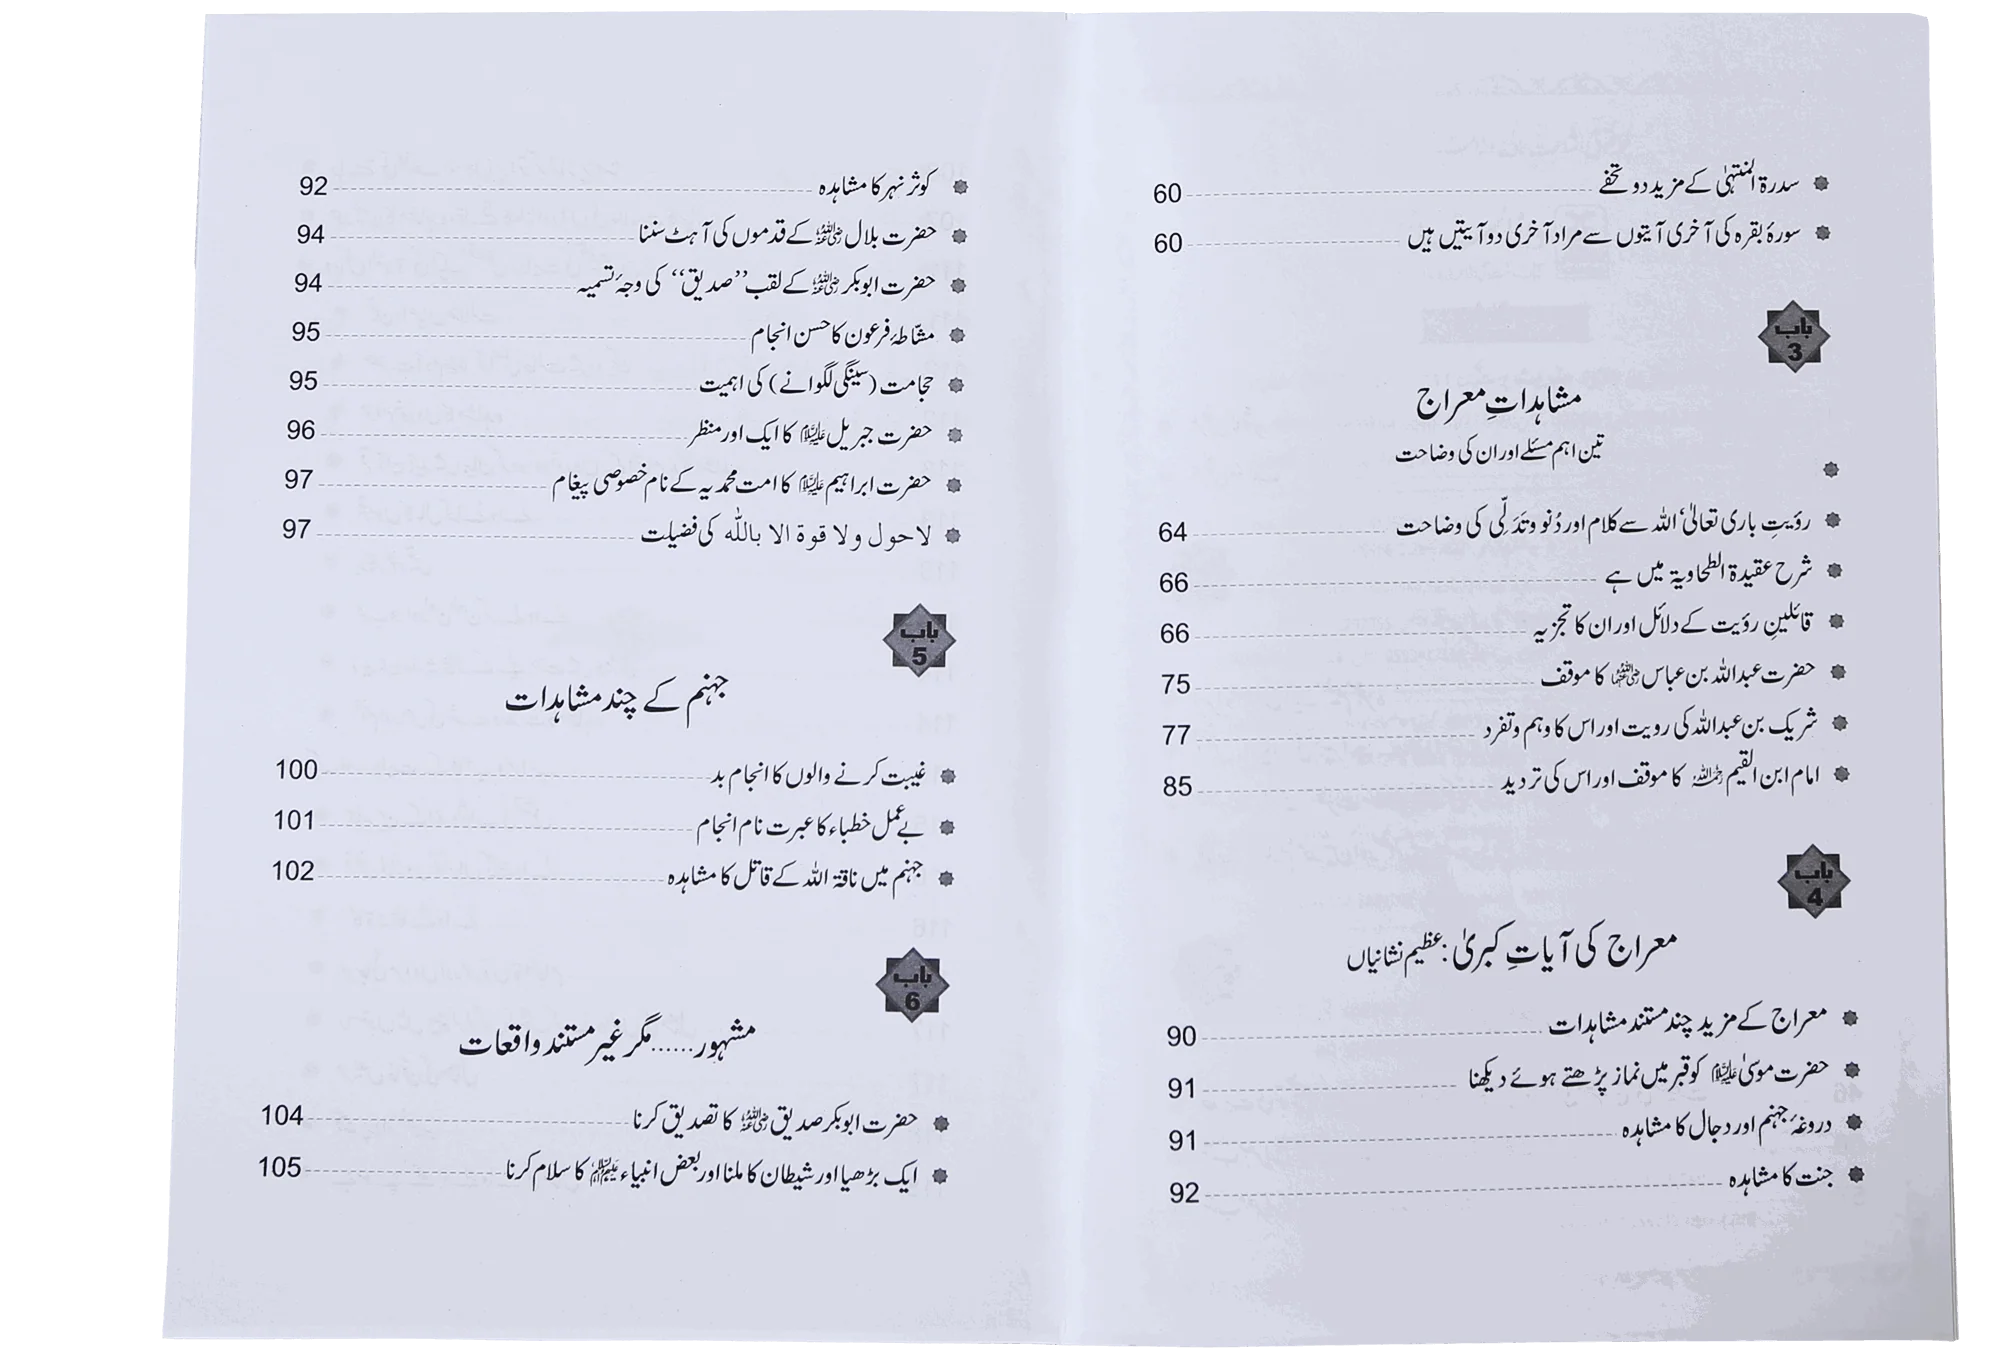 سدرۃ المنتہیٰ کے مزید دو تحفے 60
سورۂ بقرہ کی آخری آیتوں سے مراد آخری دو آیتیں ہیں 60
باب 3
مشاہداتِ معراج
تین اہم مسئلے اور ان کی وضاحت
رؤیتِ باری تعالیٰ، اللہ سے کلام اور دُنو و تَدَلّی کی وضاحت 64
شرح عقیدۃ الطحاویۃ میں ہے 66
قائلینِ رؤیت کے دلائل اور ان کا تجزیہ 66
حضرت عبداللہ بن عباس رضی اللہ عنہما کا موقف 75
شریک بن عبداللہ کی رویت اور اس کا وہم و تفرد 77
امام ابن القیم رحمہ اللہ کا موقف اور اس کی تردید 85
باب 4
معراج کی آیاتِ کبریٰ: عظیم نشانیاں
معراج کے مزید چند مستند مشاہدات 90
حضرت موسیٰ علیہ السلام کو قبر میں نماز پڑھتے ہوئے دیکھنا 91
دروغۂ جہنم اور دجال کا مشاہدہ 91
جنت کا مشاہدہ 92
کوثر نہر کا مشاہدہ 92
حضرت بلال رضی اللہ عنہ کے قدموں کی آہٹ سننا 94
حضرت ابوبکر رضی اللہ عنہ کے لقب ’’صدیق‘‘ کی وجۂ تسمیہ 94
مشّاطۂ فرعون کا حسن انجام 95
حجامت (سینگی لگوانے) کی اہمیت 95
حضرت جبریل علیہ السلام کا ایک اور منظر 96
حضرت ابراہیم علیہ السلام کا امت محمدیہ کے نام خصوصی پیغام 97
لا حول ولا قوۃ الا باللہ کی فضیلت 97
باب 5
جہنم کے چند مشاہدات
غیبت کرنے والوں کا انجام بد 100
بے عمل خطباء کا عبرت نام انجام 101
جہنم میں ناقۃ اللہ کے قاتل کا مشاہدہ 102
باب 6
مشہور......مگر غیر مستند واقعات
حضرت ابوبکر صدیق رضی اللہ عنہ کا تصدیق کرنا 104
ایک بڑھیا اور شیطان کا ملنا اور بعض انبیاء علیہم السلام کا سلام کرنا 105